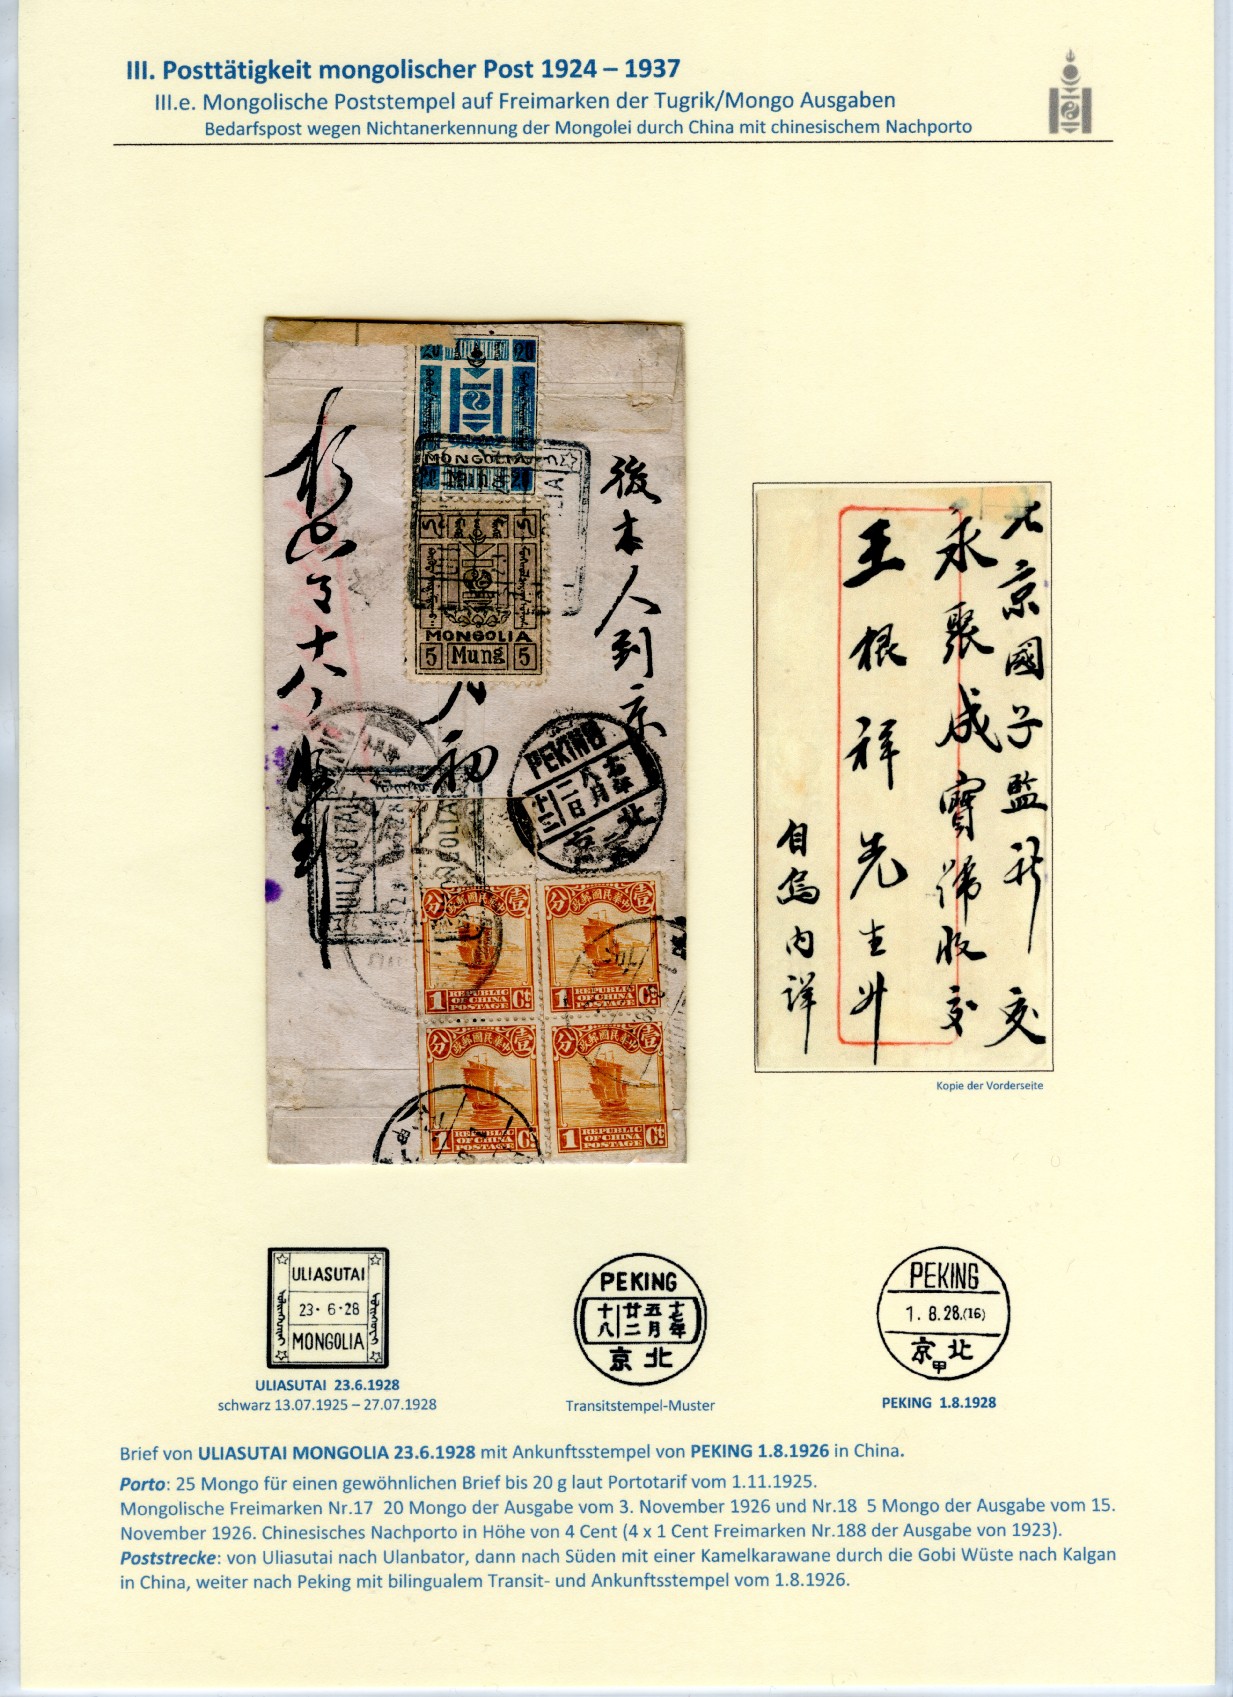 III. Posttätigkeit mongolischer Post 1924 – 1937
III.e. Mongolische Poststempel auf Freimarken der Tugrik/Mongo Ausgaben
Bedarfspost wegen Nichtanerkennung der Mongolei durch China mit chinesischem Nachporto
20 20
MONGOLIA
20 Mung 20
MONGOLIA
5 Mung 5
後本人到京
初
PEKING
十七年
八月
二日
十三
北京
ULIASUTAI
MONGOLIA
分 中華民國郵政 壹
1 REPUBLIC OF CHINA POSTAGE Ct
分 中華民國郵政 壹
1 REPUBLIC OF CHINA POSTAGE Ct
分 中華民國郵政 壹
1 REPUBLIC OF CHINA POSTAGE Ct
分 中華民國郵政 壹
1 REPUBLIC OF CHINA POSTAGE Ct
北京國子監 交
永聚成寶號收交
王根祥先生升
自烏內詳
Kopie der Vorderseite
ULIASUTAI
23·6·28
MONGOLIA
ULIASUTAI 23.6.1928
schwarz 13.07.1925 – 27.07.1928
PEKING
十八 廿二 五月 十七年
京北
Transitstempel-Muster
PEKING
1.8.28.(16)
京北
甲
PEKING 1.8.1928
Brief von ULIASUTAI MONGOLIA 23.6.1928 mit Ankunftsstempel von PEKING 1.8.1926 in China.
Porto: 25 Mongo für einen gewöhnlichen Brief bis 20 g laut Portotarif vom 1.11.1925.
Mongolische Freimarken Nr.17 20 Mongo der Ausgabe vom 3. November 1926 und Nr.18 5 Mongo der Ausgabe vom 15.
November 1926. Chinesisches Nachporto in Höhe von 4 Cent (4 x 1 Cent Freimarken Nr.188 der Ausgabe von 1923).
Poststrecke: von Uliasutai nach Ulanbator, dann nach Süden mit einer Kamelkarawane durch die Gobi Wüste nach Kalgan
in China, weiter nach Peking mit bilingualem Transit- und Ankunftsstempel vom 1.8.1926.